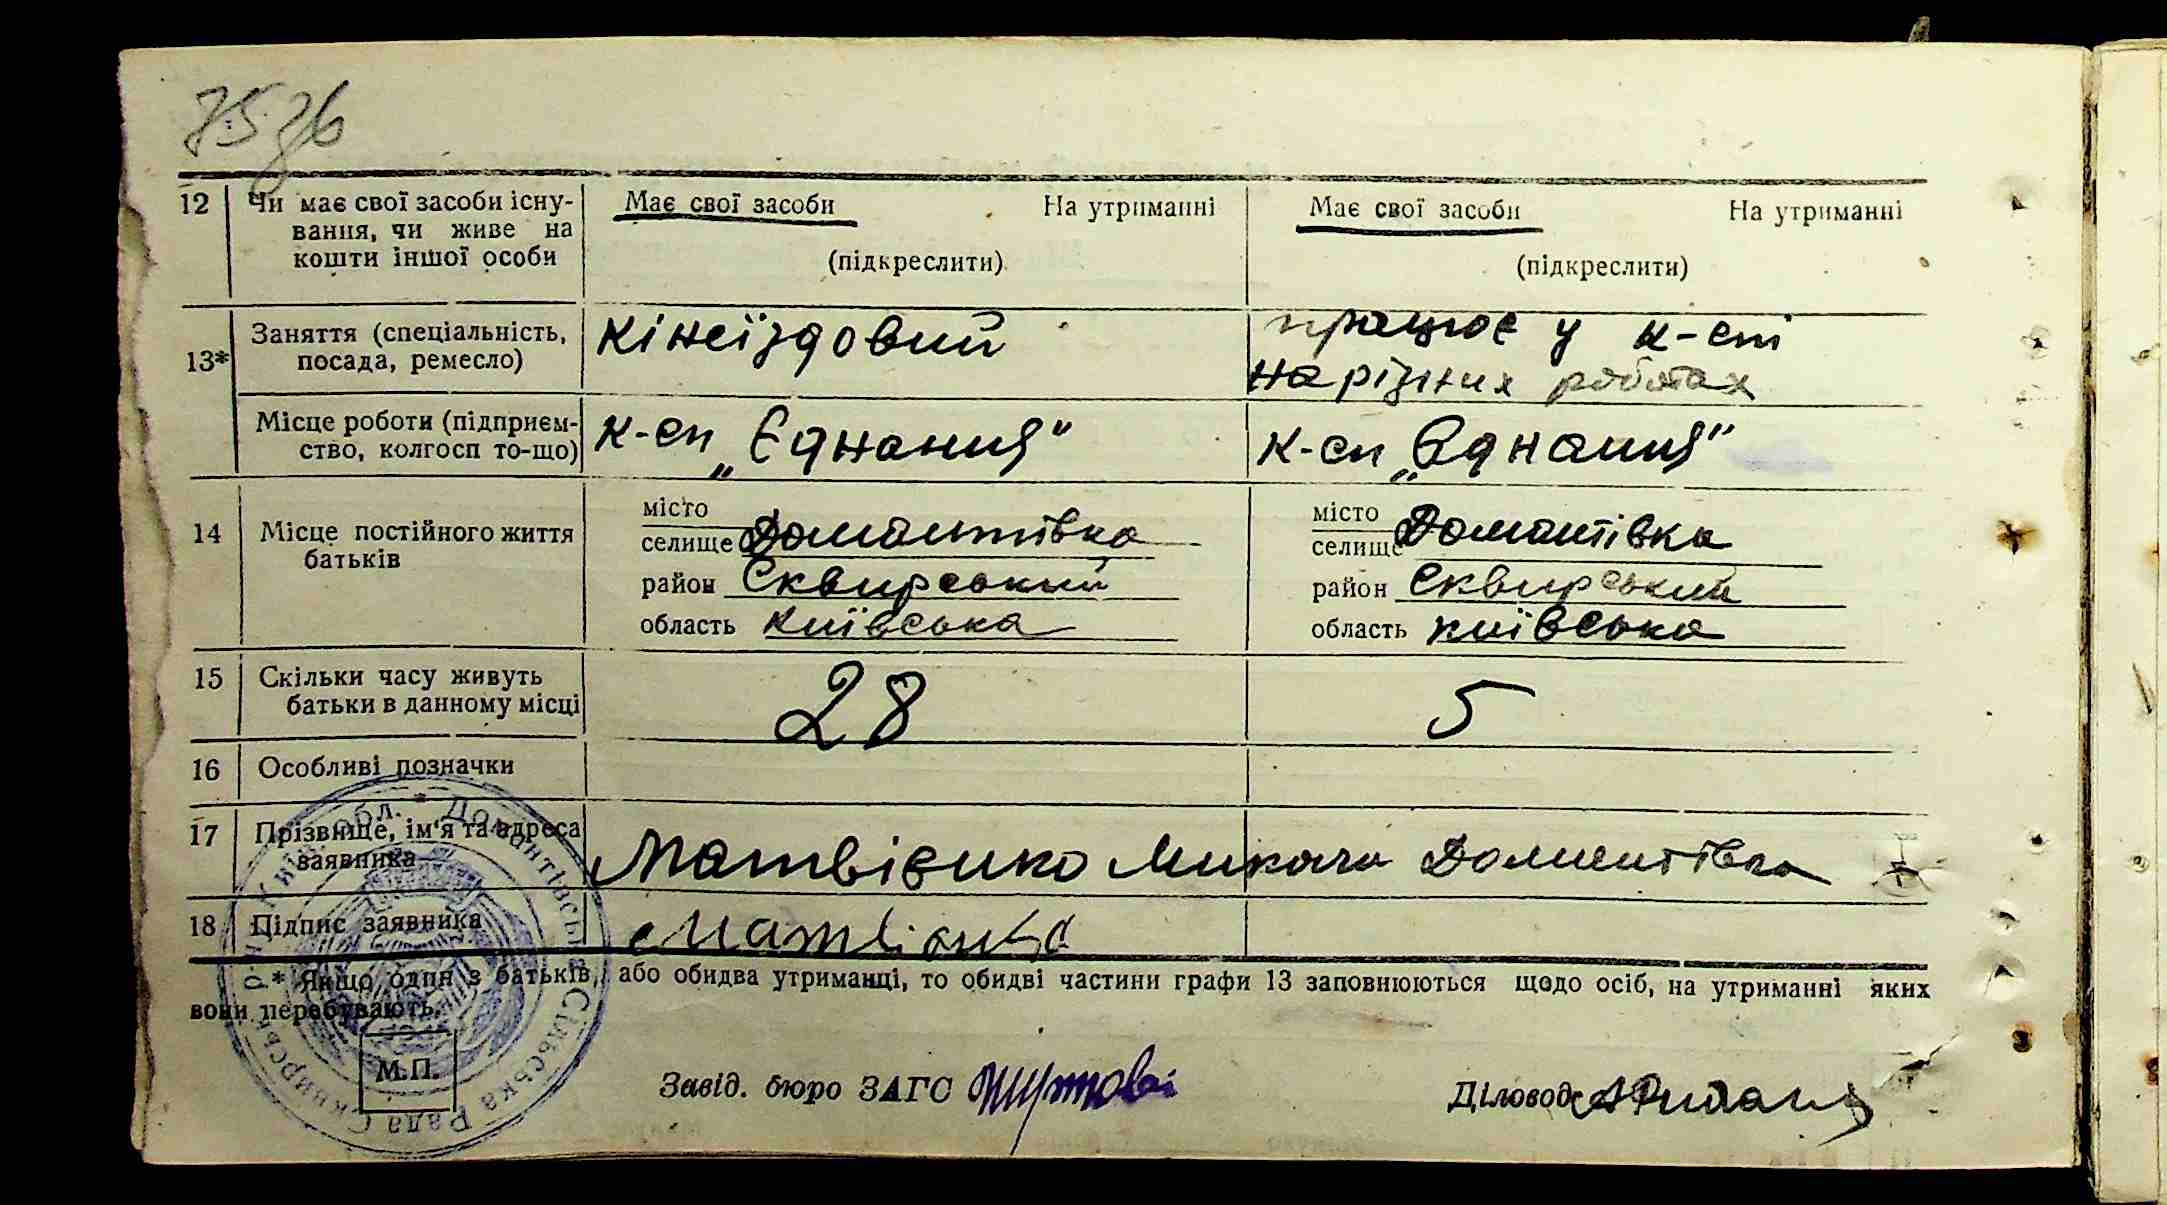 75 зв
12 Чи має свої засоби існу-
вання, чи живе на
кошти іншої особи
Має свої засоби На утриманні
(підкреслити)
Має свої засоби На утриманні
(підкреслити)
13* Заняття (спеціальність,
посада, ремесло)
кінеїздовий
працює у к-спі
на різних роботах
Місце роботи (підприєм-
ство, колгосп то-що)
к-сп „Єднання"
к-сп „Єднання"
14 Місце постійного життя
батьків
місто
селище Домантівка
район Сквирський
область Київська
місто
селище Домантівка
район Сквирський
область Київська
15 Скільки часу живуть
батьки в данному місці
28
5
16 Особливі позначки
17 Прізвище, ім'я та адреса
заявника
Матвієнко Микола Домантівка
18 Підпис заявника
* Якщо один з батьків, або обидва утриманці, то обидві частини графи 13 заповнюються щодо осіб, на утриманні яких
вони перебувають.
М.П.
Домантівська Сільська Рада Сквирськ. р-н Київ. обл.
Завід. бюро ЗАГС
Діловод